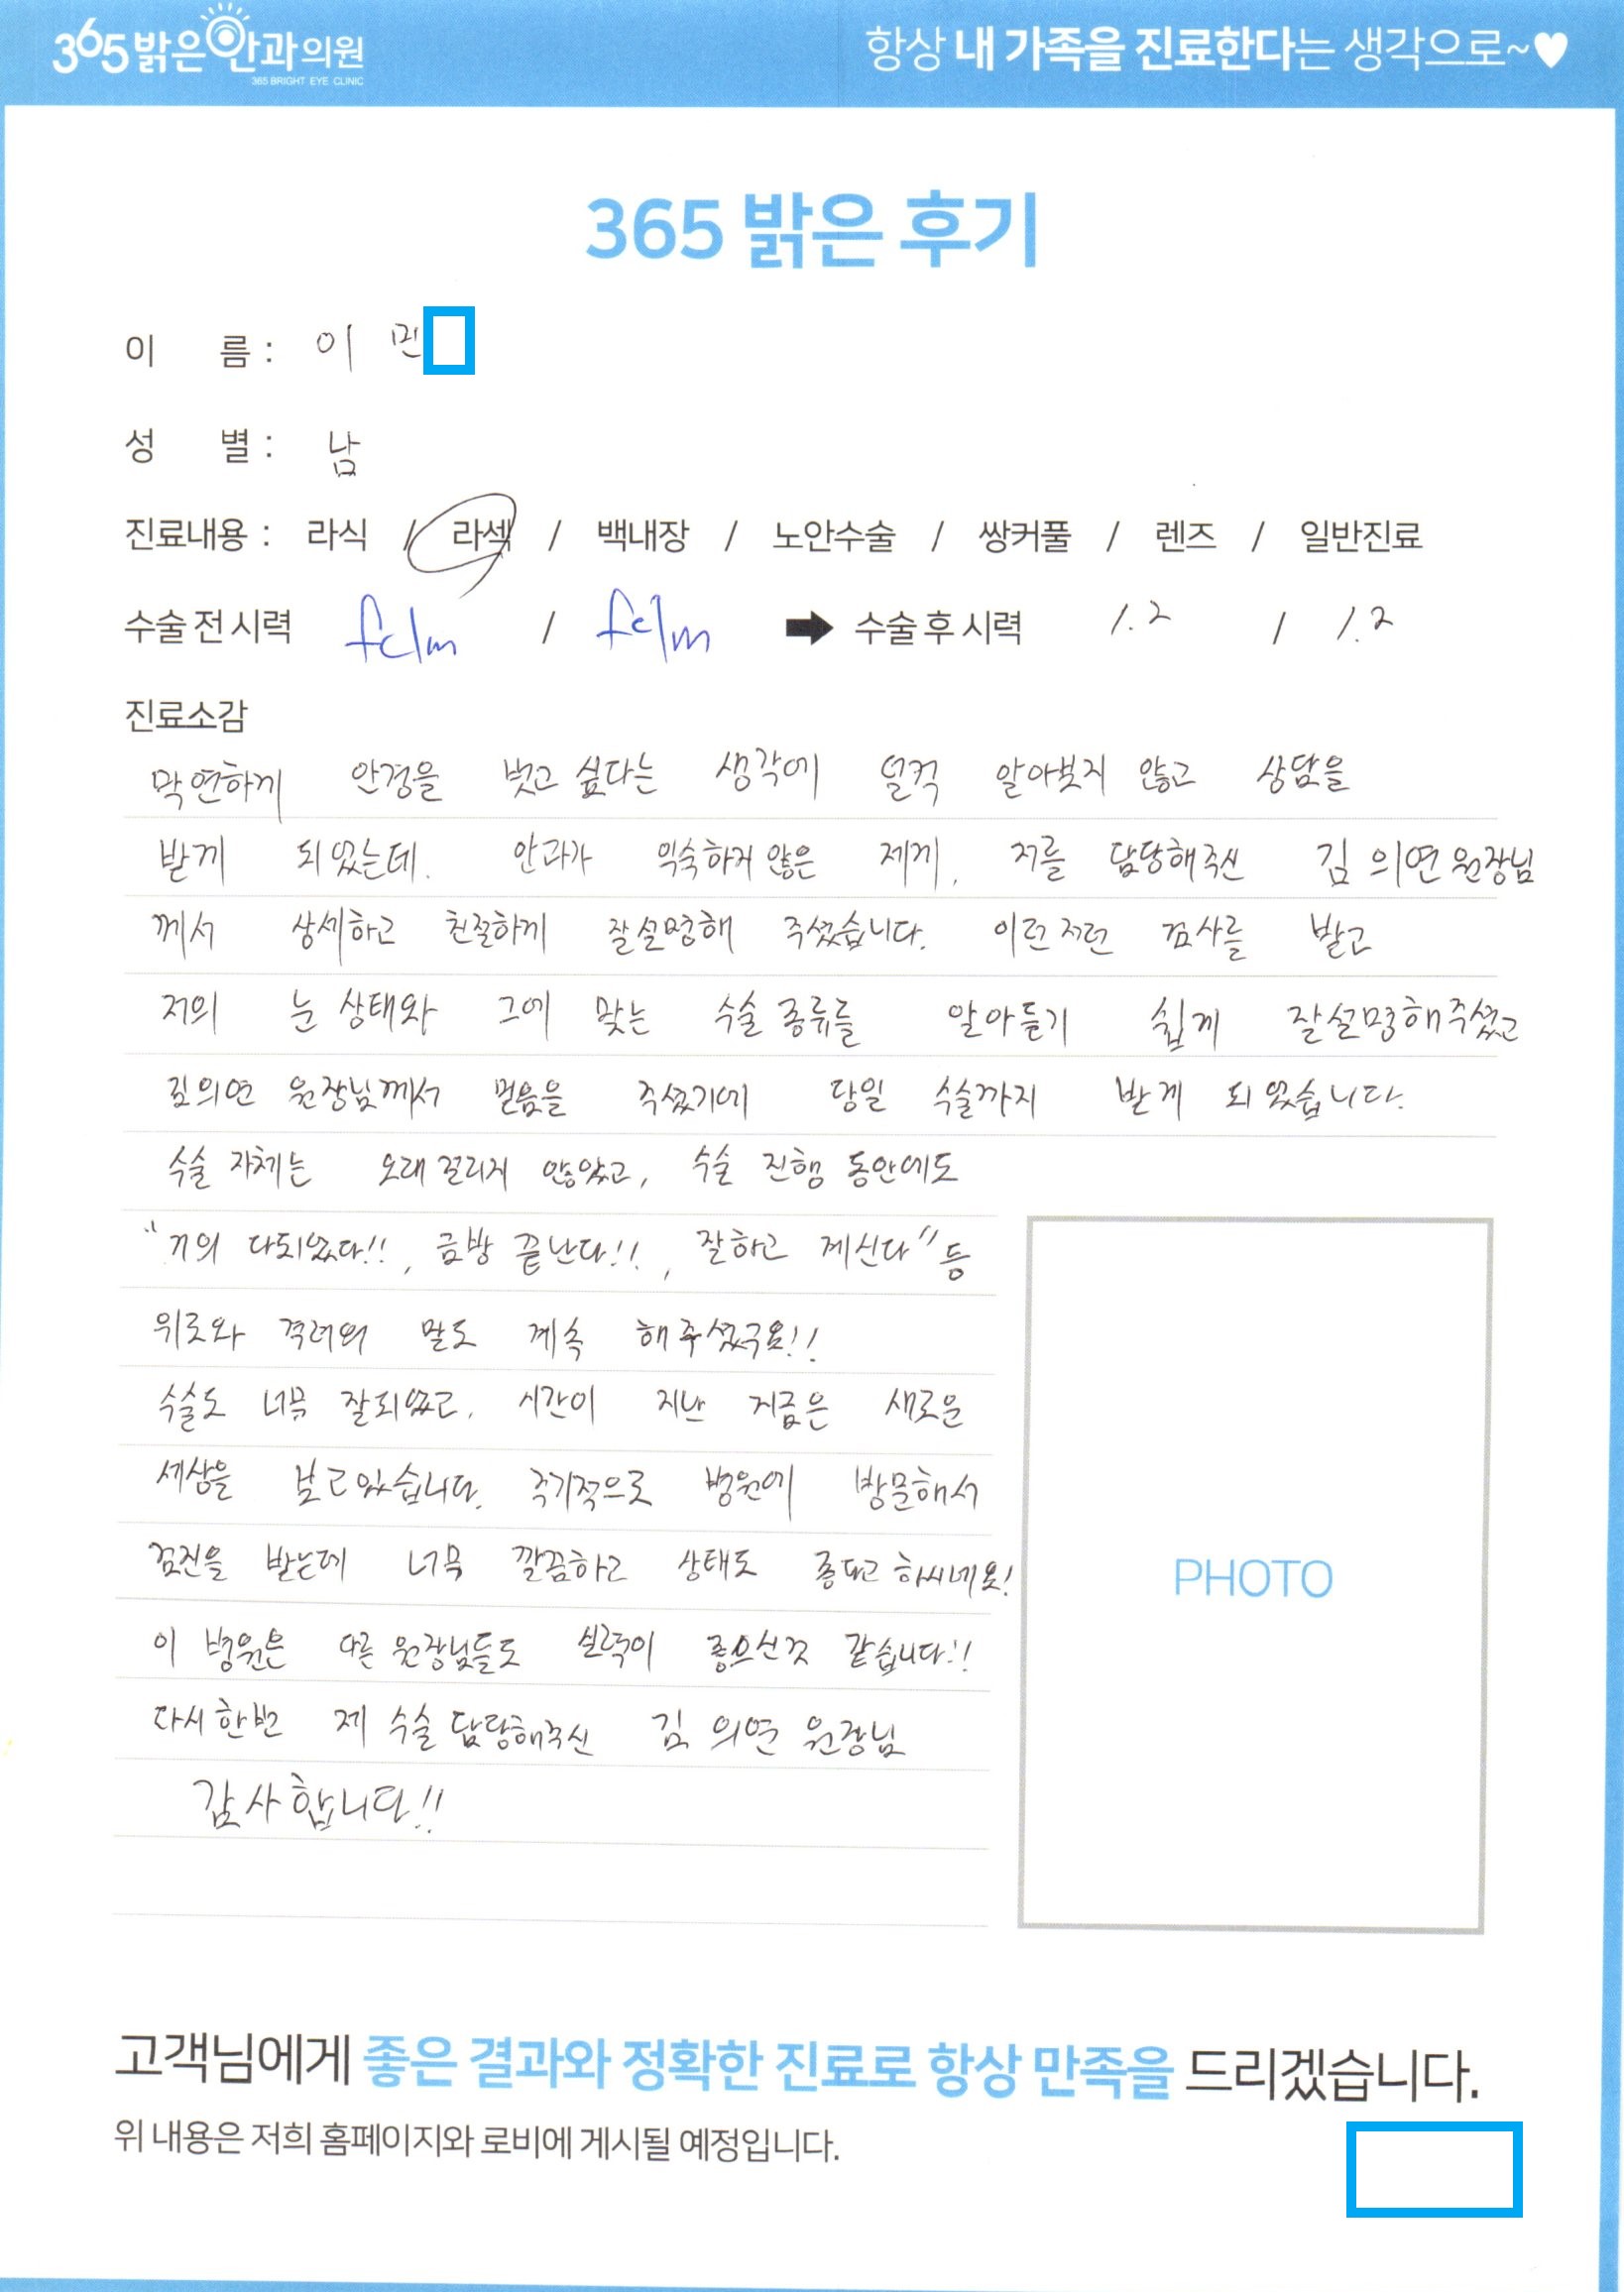 365밝은안과의원
365 BRIGHT EYE CLINIC
항상 내 가족을 진료한다는 생각으로~♥
365 밝은 후기
이 름 : 이 민
성 별 : 남
진료내용 : 라식 / 라섹 / 백내장 / 노안수술 / 쌍커풀 / 렌즈 / 일반진료
수술 전 시력 fc1m / fc1m ➡ 수술 후 시력 1.2 / 1.2
진료소감
막연하게 안경을 벗고 싶다는 생각에 덜컥 알아보지 않고 상담을
받게 되었는데. 안과가 익숙하지 않은 제게, 저를 담당해주신 김 의연 원장님
께서 상세하고 친절하게 잘설명해 주셨습니다. 이런저런 검사를 받고
저의 눈 상태와 그에 맞는 수술 종류를 알아듣기 쉽게 잘설명해주셨고
김의연 원장님께서 믿음을 주셨기에 당일 수술까지 받게 되었습니다.
수술 자체는 오래걸리지 않았고, 수술 진행 동안에도
"거의 다되었다!!, 금방 끝난다!!, 잘하고 계신다" 등
위로와 격려의 말도 계속 해주셨구요!!
수술도 너무 잘되었고, 시간이 지난 지금은 새로운
세상을 보고있습니다. 주기적으로 병원에 방문해서
검진을 받는데 너무 깔끔하고 상태도 좋다고 하시네요!
이 병원은 다른 원장님들도 실력이 좋으신것 같습니다!!
다시한번 제 수술 담당해주신 김 의연 원장님
감사합니다!!
PHOTO
고객님에게 좋은 결과와 정확한 진료로 항상 만족을 드리겠습니다.
위 내용은 저희 홈페이지와 로비에 게시될 예정입니다.